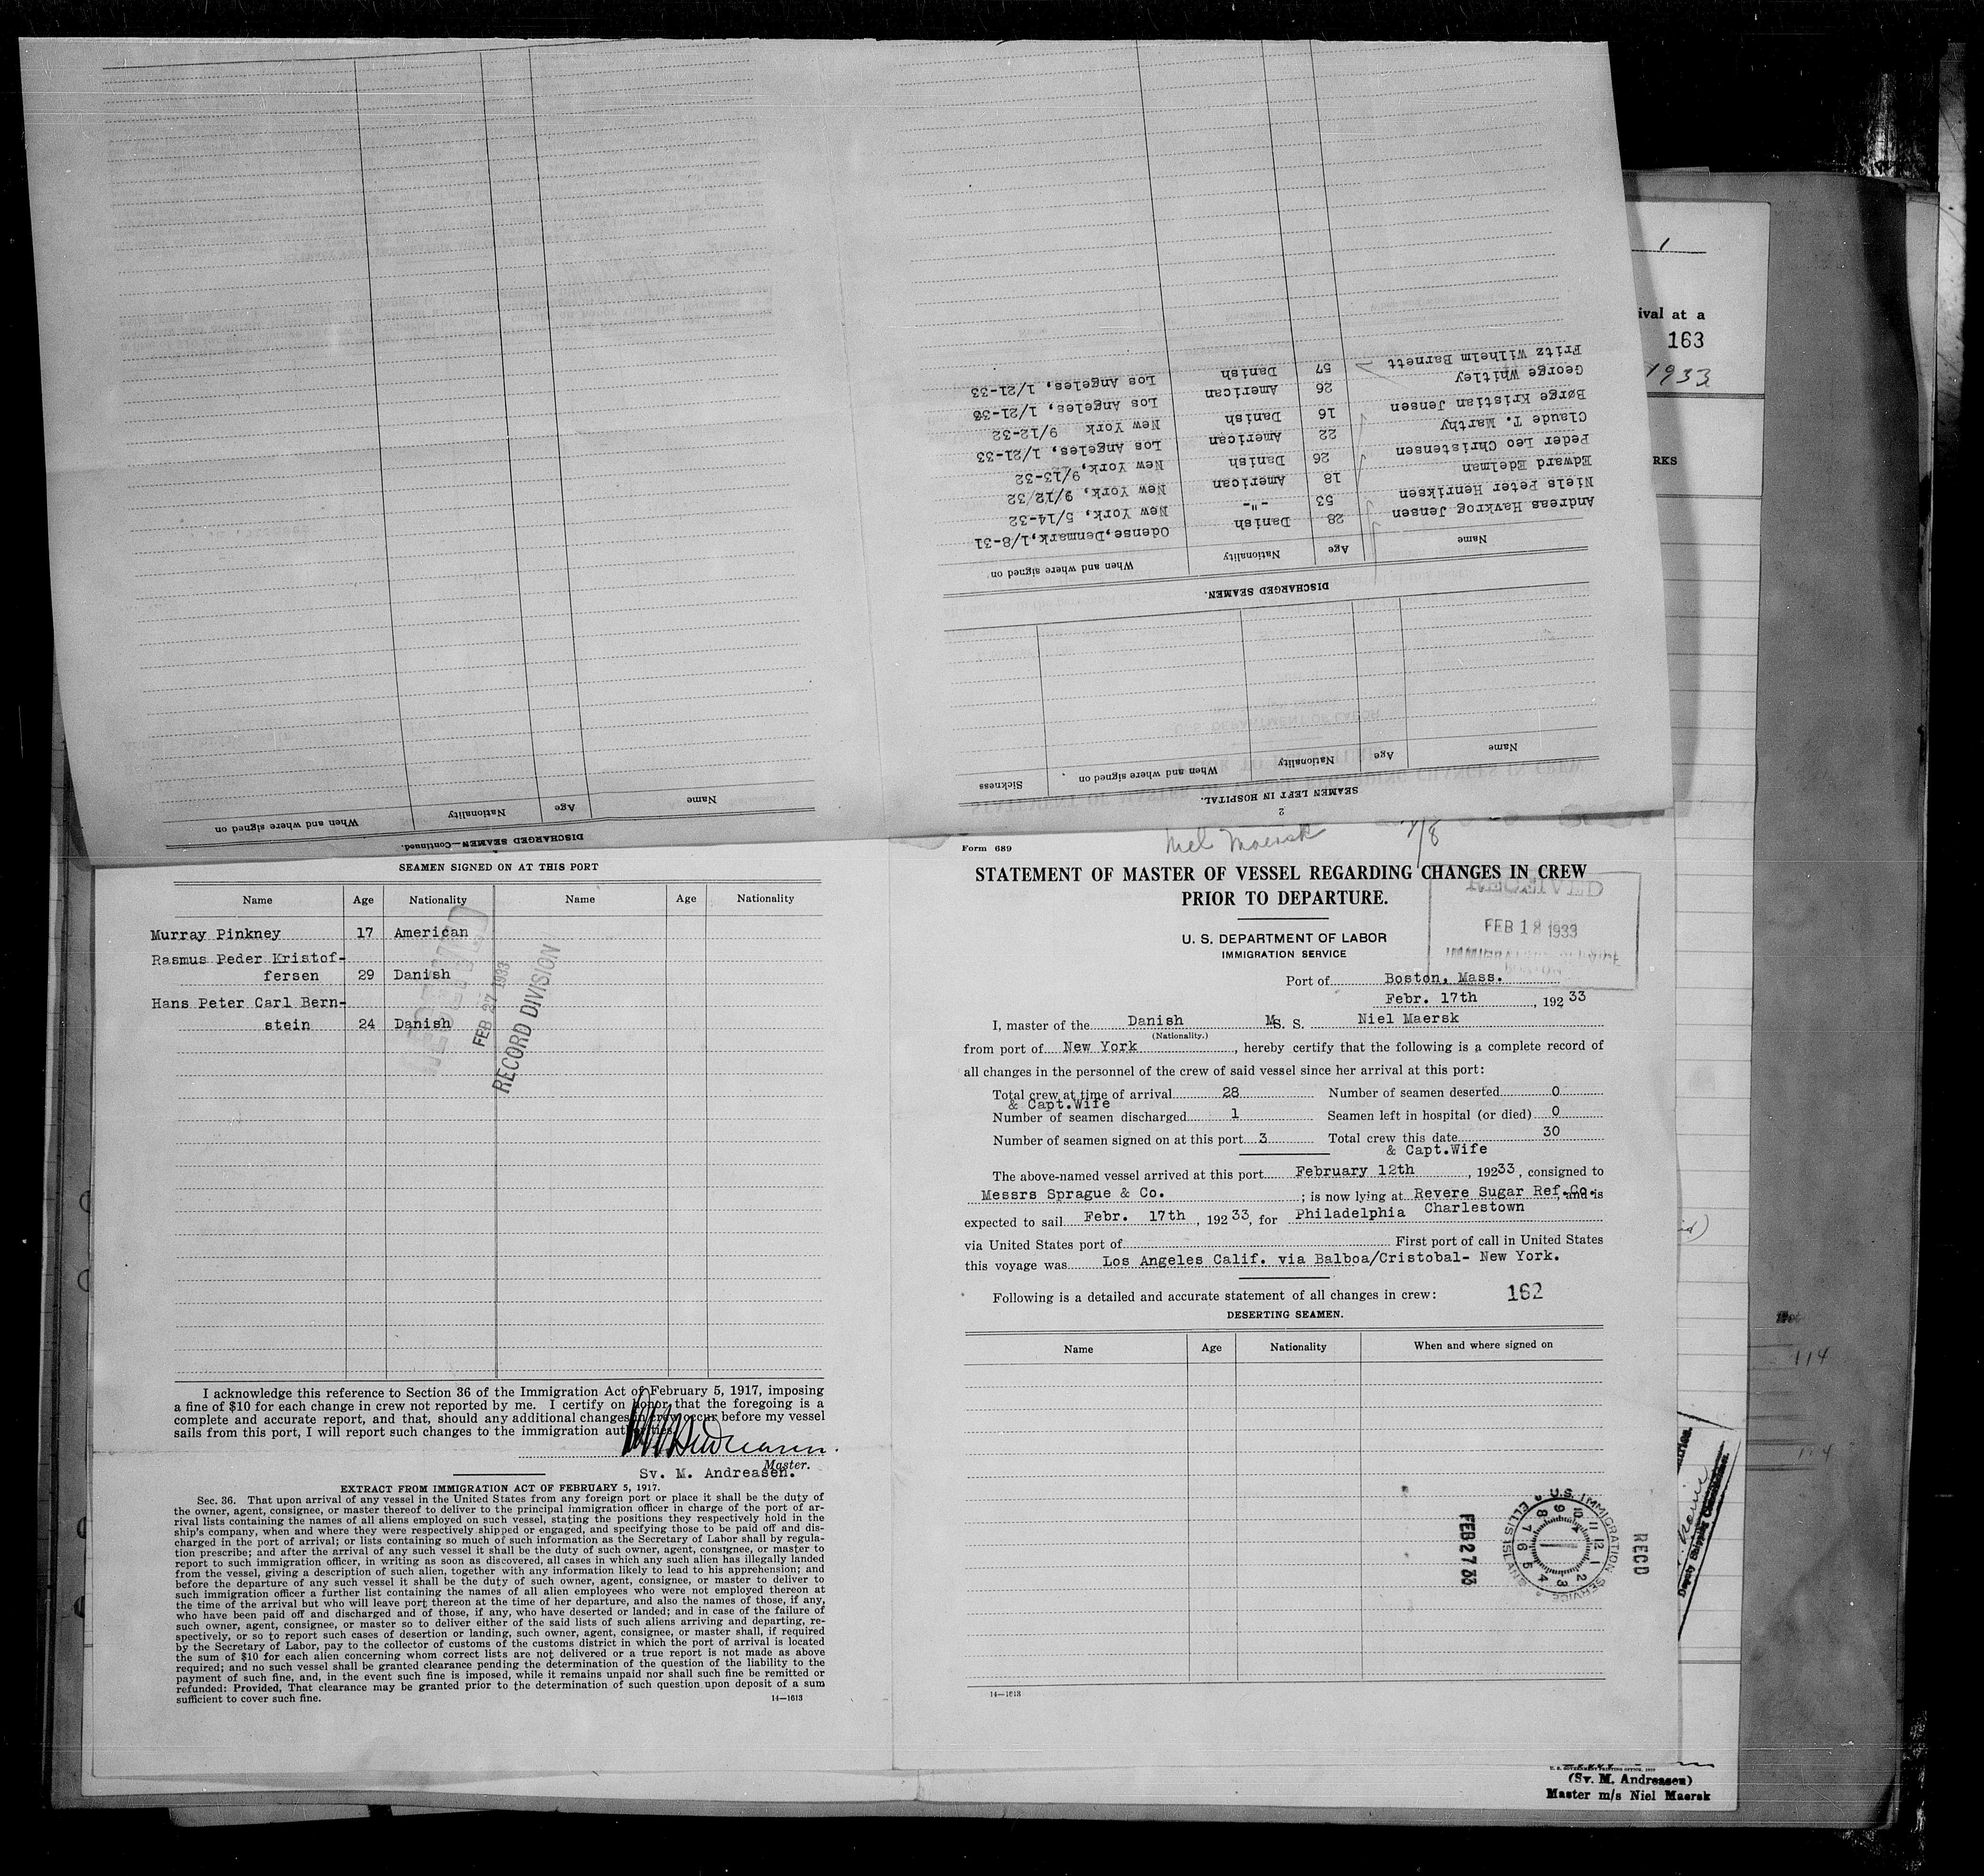 DISCHARGED SEAMEN—Continued.
Name Age Nationality When and where signed on
2
SEAMEN LEFT IN HOSPITAL.
Name Age Nationality When and where signed on Sickness
DISCHARGED SEAMEN.
Name Age Nationality When and where signed on
Andreas Havkrog Jensen 28 Danish Odense, Denmark, 1/8-31
Niels Peter Henriksen 53 -"- New York, 5/14-32
Edward Edelman 18 American New York, 9/12/32
Peder Leo Christensen 26 Danish New York, 9/13-32
Claude T. Marthy 22 American Los Angeles, 1/21-33
Børge Kristian Jensen 16 Danish New York 9/12-32
George Whitley 26 American Los Angeles, 1/21-33
Fritz Wilhelm Barnett 57 Danish Los Angeles, 1/21-33
1
ival at a
163
1933
RKS
SEAMEN SIGNED ON AT THIS PORT
Name Age Nationality Name Age Nationality
Murray Pinkney 17 American
Rasmus Peder Kristof-
fersen 29 Danish
Hans Peter Carl Bern-
stein 24 Danish
RECEIVED
FEB 27 1933
RECORD DIVISION
I acknowledge this reference to Section 36 of the Immigration Act of February 5, 1917, imposing
a fine of $10 for each change in crew not reported by me. I certify on honor that the foregoing is a
complete and accurate report, and that, should any additional changes in crew occur before my vessel
sails from this port, I will report such changes to the immigration authorities.
Master.
Sv. M. Andreasen.
EXTRACT FROM IMMIGRATION ACT OF FEBRUARY 5, 1917.
Sec. 36. That upon arrival of any vessel in the United States from any foreign port or place it shall be the duty of
the owner, agent, consignee, or master thereof to deliver to the principal immigration officer in charge of the port of ar-
rival lists containing the names of all aliens employed on such vessel, stating the positions they respectively hold in the
ship's company, when and where they were respectively shipped or engaged, and specifying those to be paid off and dis-
charged in the port of arrival; or lists containing so much of such information as the Secretary of Labor shall by regula-
tion prescribe; and after the arrival of any such vessel it shall be the duty of such owner, agent, consignee, or master to
report to such immigration officer, in writing as soon as discovered, all cases in which any such alien has illegally landed
from the vessel, giving a description of such alien, together with any information likely to lead to his apprehension; and
before the departure of any such vessel it shall be the duty of such owner, agent, consignee, or master to deliver to
such immigration officer a further list containing the names of all alien employees who were not employed thereon at
the time of the arrival but who will leave port thereon at the time of her departure, and also the names of those, if any,
who have been paid off and discharged and of those, if any, who have deserted or landed; and in case of the failure of
such owner, agent, consignee, or master so to deliver either of the said lists of such aliens arriving and departing, re-
spectively, or so to report such cases of desertion or landing, such owner, agent, consignee, or master shall, if required
by the Secretary of Labor, pay to the collector of customs of the customs district in which the port of arrival is located
the sum of $10 for each alien concerning whom correct lists are not delivered or a true report is not made as above
required; and no such vessel shall be granted clearance pending the determination of the question of the liability to the
payment of such fine, and, in the event such fine is imposed, while it remains unpaid nor shall such fine be remitted or
refunded: Provided, That clearance may be granted prior to the determination of such question upon deposit of a sum
sufficient to cover such fine.
14—1613
Niel Maersk
7/8
Form 689
STATEMENT OF MASTER OF VESSEL REGARDING CHANGES IN CREW
PRIOR TO DEPARTURE.
RECEIVED
FEB 18 1933
IMMIGRATION SERVICE
BOSTON
U. S. DEPARTMENT OF LABOR
IMMIGRATION SERVICE
Port of Boston, Mass.
Febr. 17th, 192 33
I, master of the Danish M S. S. Niel Maersk
(Nationality.)
from port of New York, hereby certify that the following is a complete record of
all changes in the personnel of the crew of said vessel since her arrival at this port:
Total crew at time of arrival 28 Number of seamen deserted 0
& Capt.Wife
Number of seamen discharged 1 Seamen left in hospital (or died) 0
Number of seamen signed on at this port 3 Total crew this date 30
& Capt.Wife
The above-named vessel arrived at this port February 12th, 19233, consigned to
Messrs Sprague & Co. ; is now lying at Revere Sugar Ref.Co., and is
expected to sail Febr. 17th, 192 33, for Philadelphia Charlestown
via United States port of First port of call in United States
this voyage was Los Angeles Calif. via Balboa/Cristobal- New York.
Following is a detailed and accurate statement of all changes in crew: 162
DESERTING SEAMEN.
Name Age Nationality When and where signed on
FEB 27 33
U.S. IMMIGRATION SERVICE ELLIS ISLAND
RECD
14—1613
114
114
Deputy Shipping Commissioner.
U. S. GOVERNMENT PRINTING OFFICE
(Sv. M. Andreasen)
Master m/s Niel Maersk